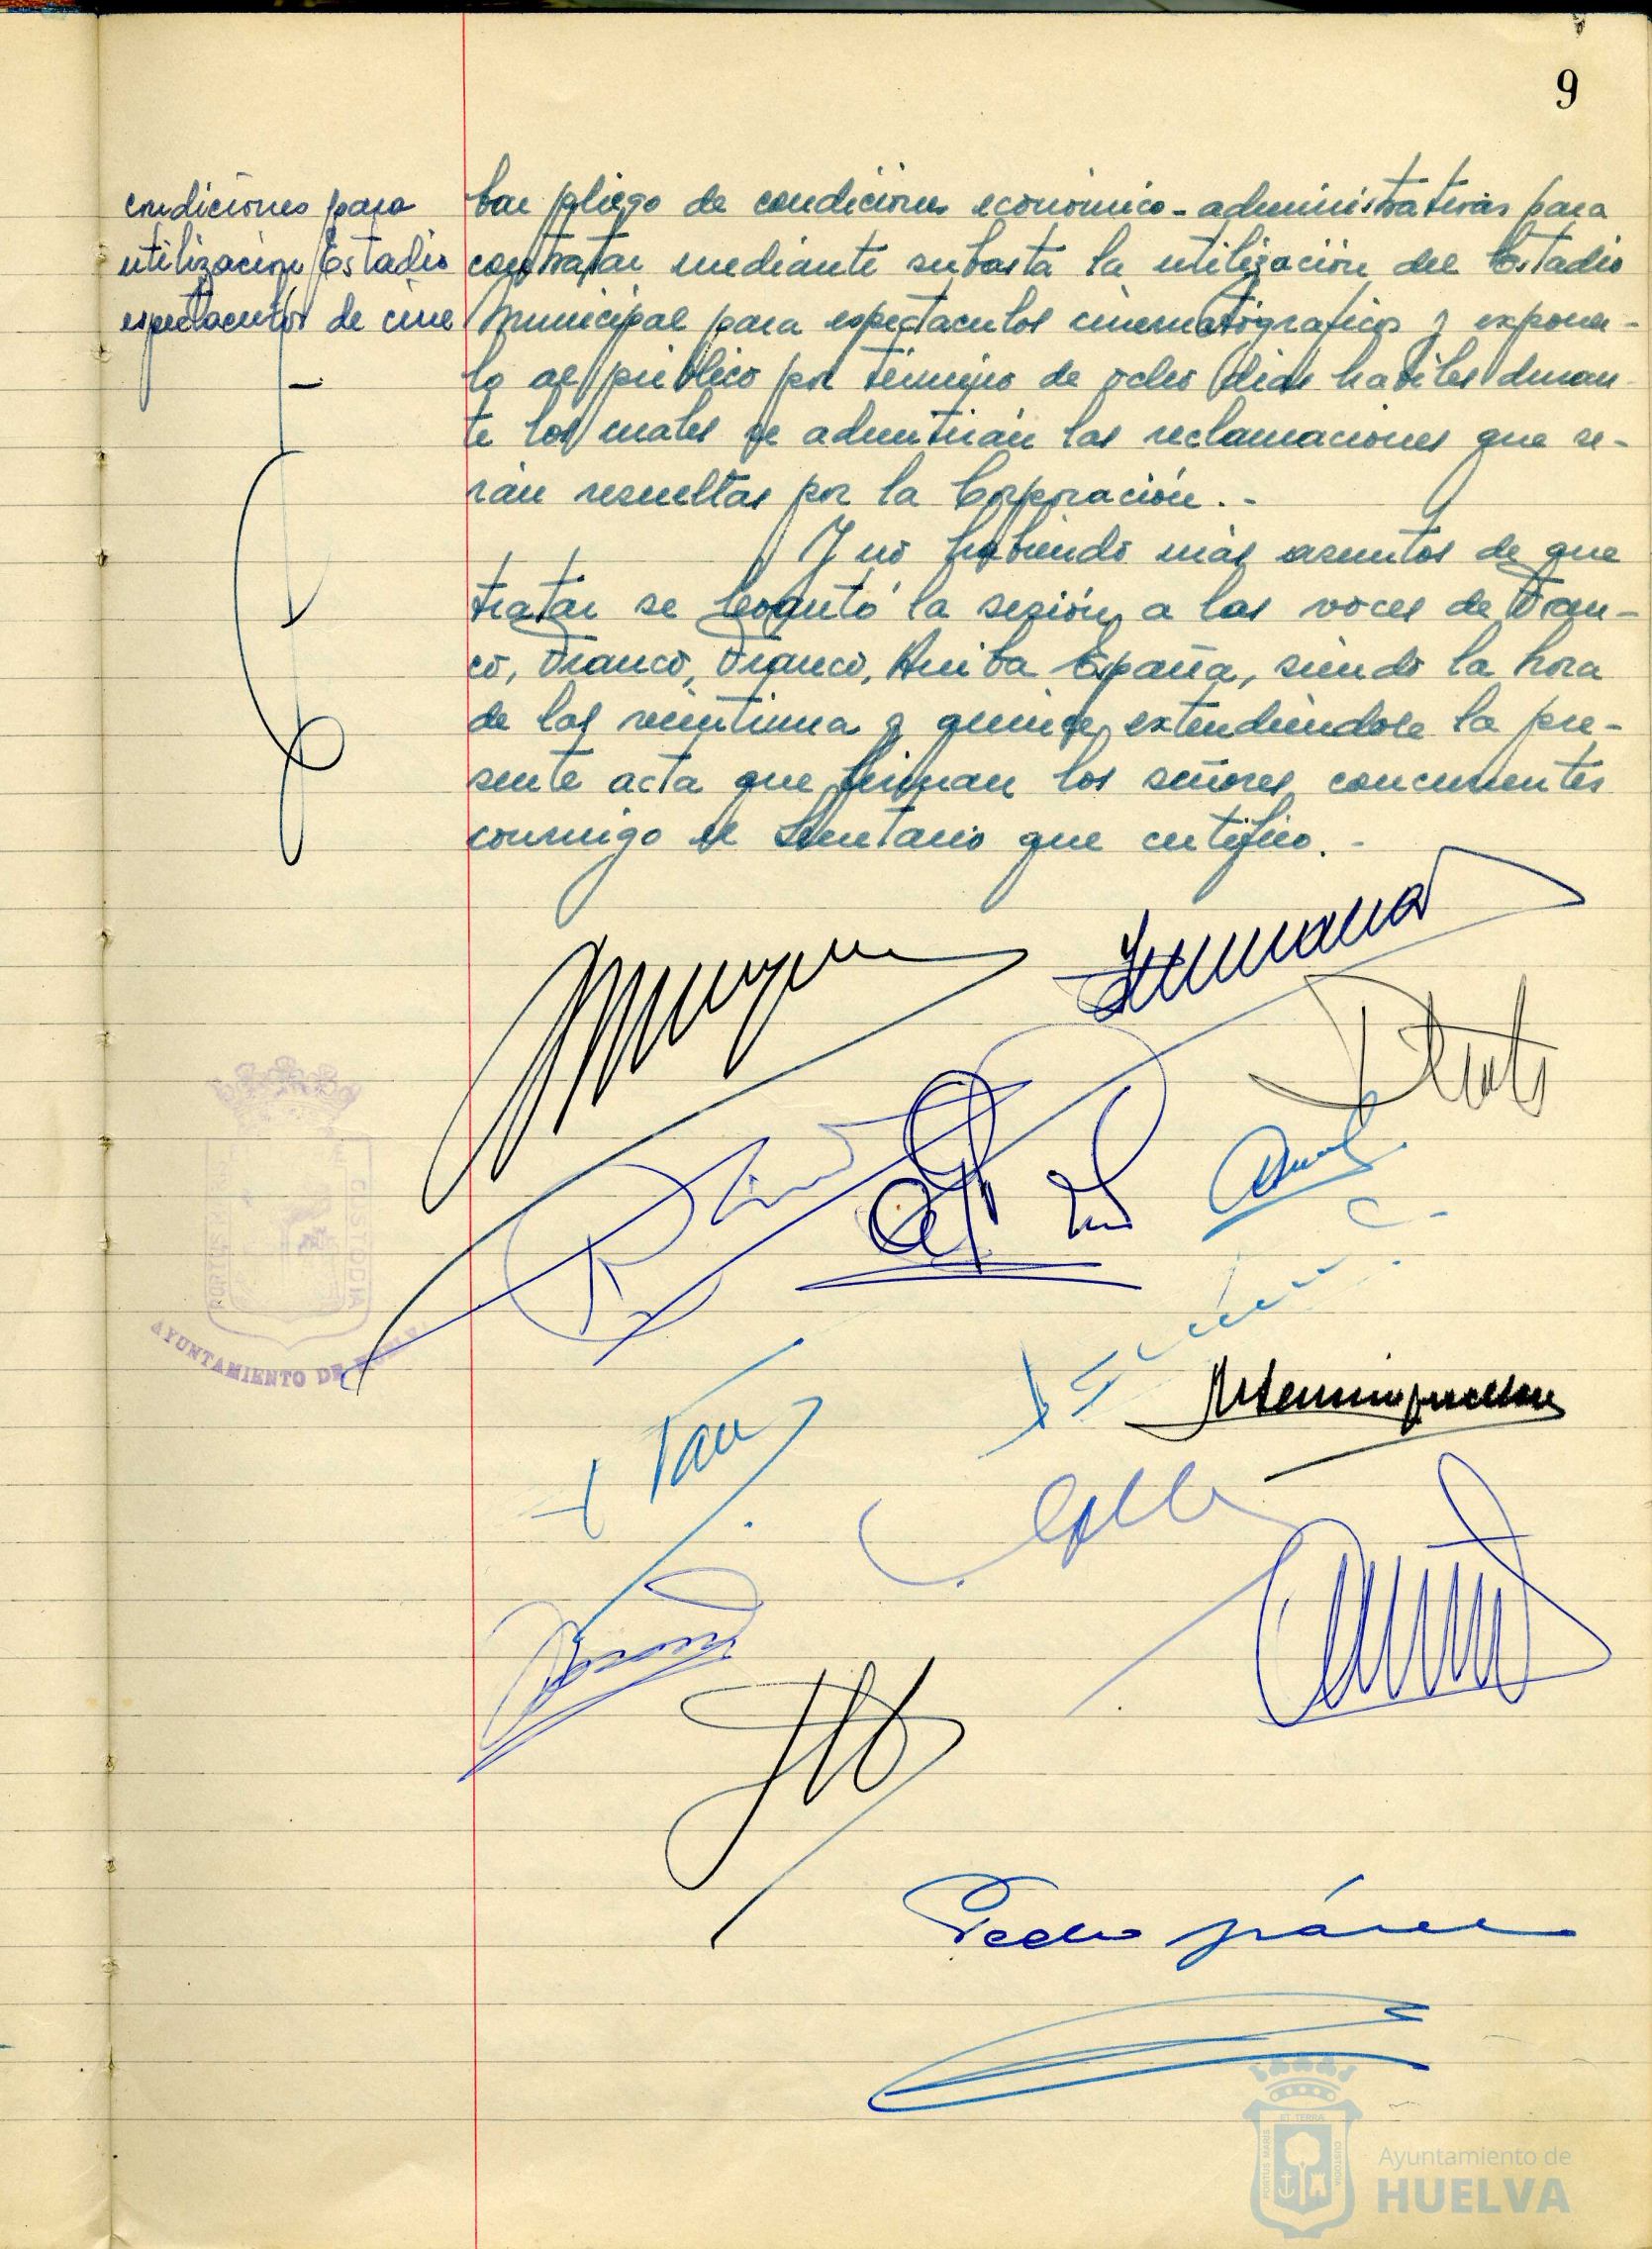 9
condiciones para
utilización Estadio
espectaculos de cine
bar pliego de condiciones economico-administrativas para
contratar mediante subasta la utilización del Estadio
Municipal para espectaculos cinematograficos y exponer-
lo al público por término de ocho dias habiles duran-
te los cuales se admitirán las reclamaciones que se-
rán resueltas por la Corporación.-
Y no habiendo más asuntos de que
tratar se levantó la sesión a las voces de Fran-
co, Franco, Franco, Arriba España, siendo la hora
de las veintiuna y quince, extendiéndose la pre-
sente acta que firman los señores concurrentes
conmigo el Secretario que certifico.-
PORTUS MARIS
CUSTODIA
AYUNTAMIENTO DE HUELVA
Pedro
PORTUS MARIS
ET TERRAE
CUSTODIA
Ayuntamiento de
HUELVA